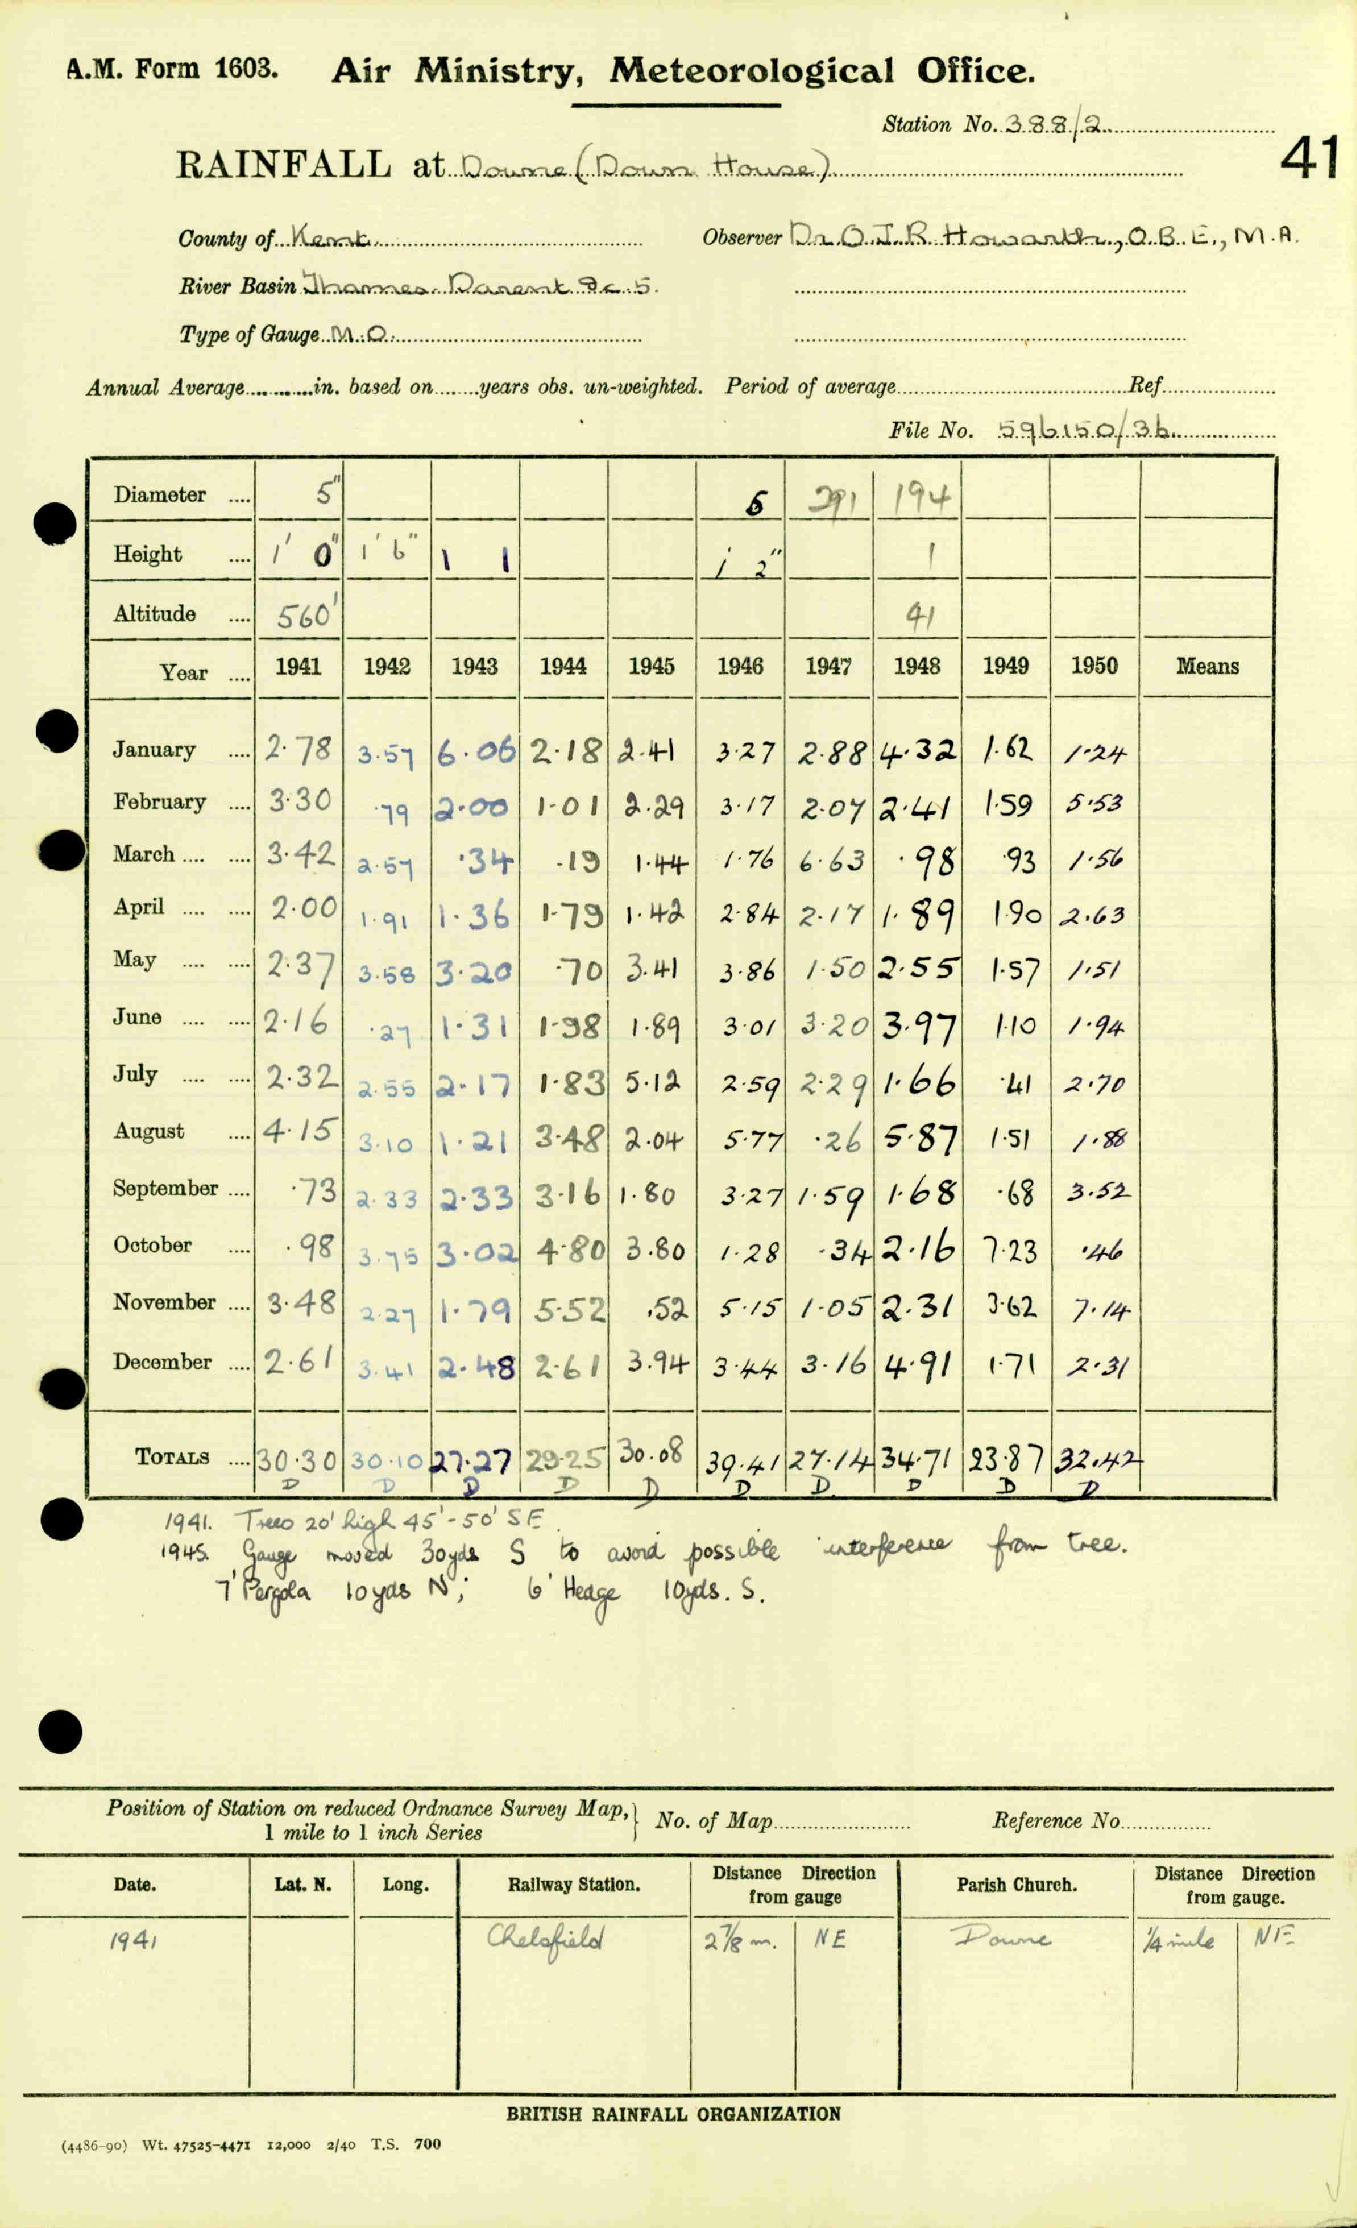 A.M. Form 1603. Air Ministry, Meteorological Office.
Station No. 388/2
41
RAINFALL at Downe (Down House)
County of Kent Observer Dr. O.J.R. Howarth, O.B.E., M.A.
River Basin Thames. Darent &c 5.
Type of Gauge M.O.
Annual Average............in. based on.......years obs. un-weighted. Period of average............Ref............
File No. 596150/36
Diameter .... 5" 5 291 194
Height .... 1' 0" 1' 6" 1 1 1 2" 1
Altitude .... 560' 41
Year .... 1941 1942 1943 1944 1945 1946 1947 1948 1949 1950 Means
January .... 2.78 3.57 6.06 2.18 2.41 3.27 2.88 4.32 1.62 1.24
February .... 3.30 .79 2.00 1.01 2.29 3.17 2.07 2.41 1.59 5.53
March .... .... 3.42 2.57 .34 .19 1.44 1.76 6.63 .98 .93 1.56
April .... .... 2.00 1.91 1.36 1.79 1.42 2.84 2.17 1.89 1.90 2.63
May .... .... 2.37 3.58 3.20 .70 3.41 3.86 1.50 2.55 1.57 1.51
June .... .... 2.16 .27 1.31 1.98 1.89 3.01 3.20 3.97 1.10 1.94
July .... .... 2.32 2.55 2.17 1.83 5.12 2.59 2.29 1.66 .41 2.70
August .... 4.15 3.10 1.21 3.48 2.04 5.77 .26 5.87 1.51 1.88
September .... .73 2.33 2.33 3.16 1.80 3.27 1.59 1.68 .68 3.52
October .... .98 3.75 3.02 4.80 3.80 1.28 .34 2.16 7.23 .46
November .... 3.48 2.27 1.79 5.52 .52 5.15 1.05 2.31 3.62 7.14
December .... 2.61 3.41 2.48 2.61 3.94 3.44 3.16 4.91 1.71 2.31
TOTALS .... 30.30 30.10 27.27 29.25 30.08 39.41 27.14 34.71 23.87 32.42
D D D D D D D D D D
1941. Trees 20' high 45'-50' SE.
1945. Gauge moved 30yds S to avoid possible interference from tree.
7' Pergola 10yds N; 6' Hedge 10yds. S.
Position of Station on reduced Ordnance Survey Map, 1 mile to 1 inch Series } No. of Map............ Reference No............
Date. Lat. N. Long. Railway Station. Distance Direction from gauge Parish Church. Distance Direction from gauge.
1941 Chelsfield 2 7/8 m. NE Downe 1/4 mile NE
BRITISH RAINFALL ORGANIZATION
(4486-90) Wt. 47525-4471 12,000 2/40 T.S. 700